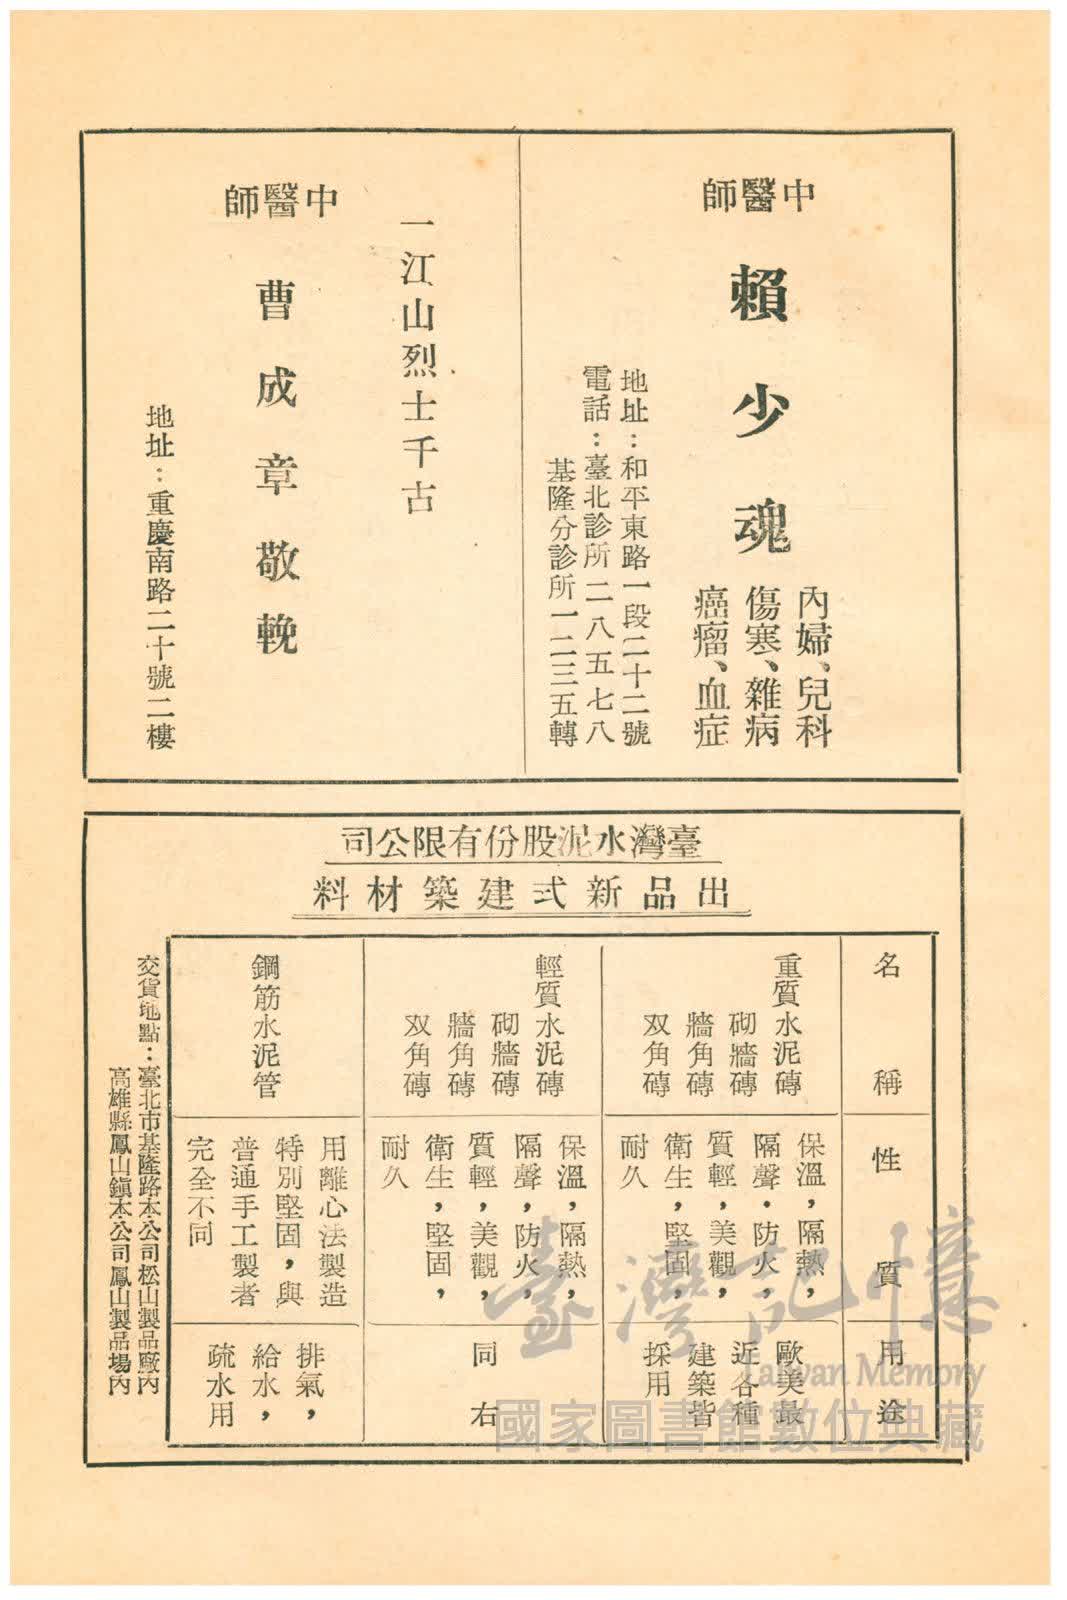 中醫師
賴少魂
內婦、兒科
傷寒、雜病
癌瘤、血症
地址：和平東路一段二十二號
電話：臺北診所二八五七八
基隆分診所一二三五轉
一江山烈士千古
中醫師
曹成章敬輓
地址：重慶南路二十號二樓
臺灣水泥股份有限公司
出品新式建築材料
名稱
性質
用途
重質水泥磚
砌牆磚
牆角磚
双角磚
保溫，隔熱，
隔聲．防火，
質輕，美觀，
衛生，堅固，
耐久
歐美最
近各種
建築皆
採用
輕質水泥磚
砌牆磚
牆角磚
双角磚
保溫，隔熱，
隔聲，防火，
質輕，美觀，
衛生，堅固，
耐久
同右
鋼筋水泥管
用離心法製造
特別堅固，與
普通手工製者
完全不同
排氣，
給水，
疏水用
交貨地點：臺北市基隆路本公司松山製品廠內
高雄縣鳳山鎮本公司鳳山製品場內
臺灣記憶
Taiwan Memory
國家圖書館數位典藏